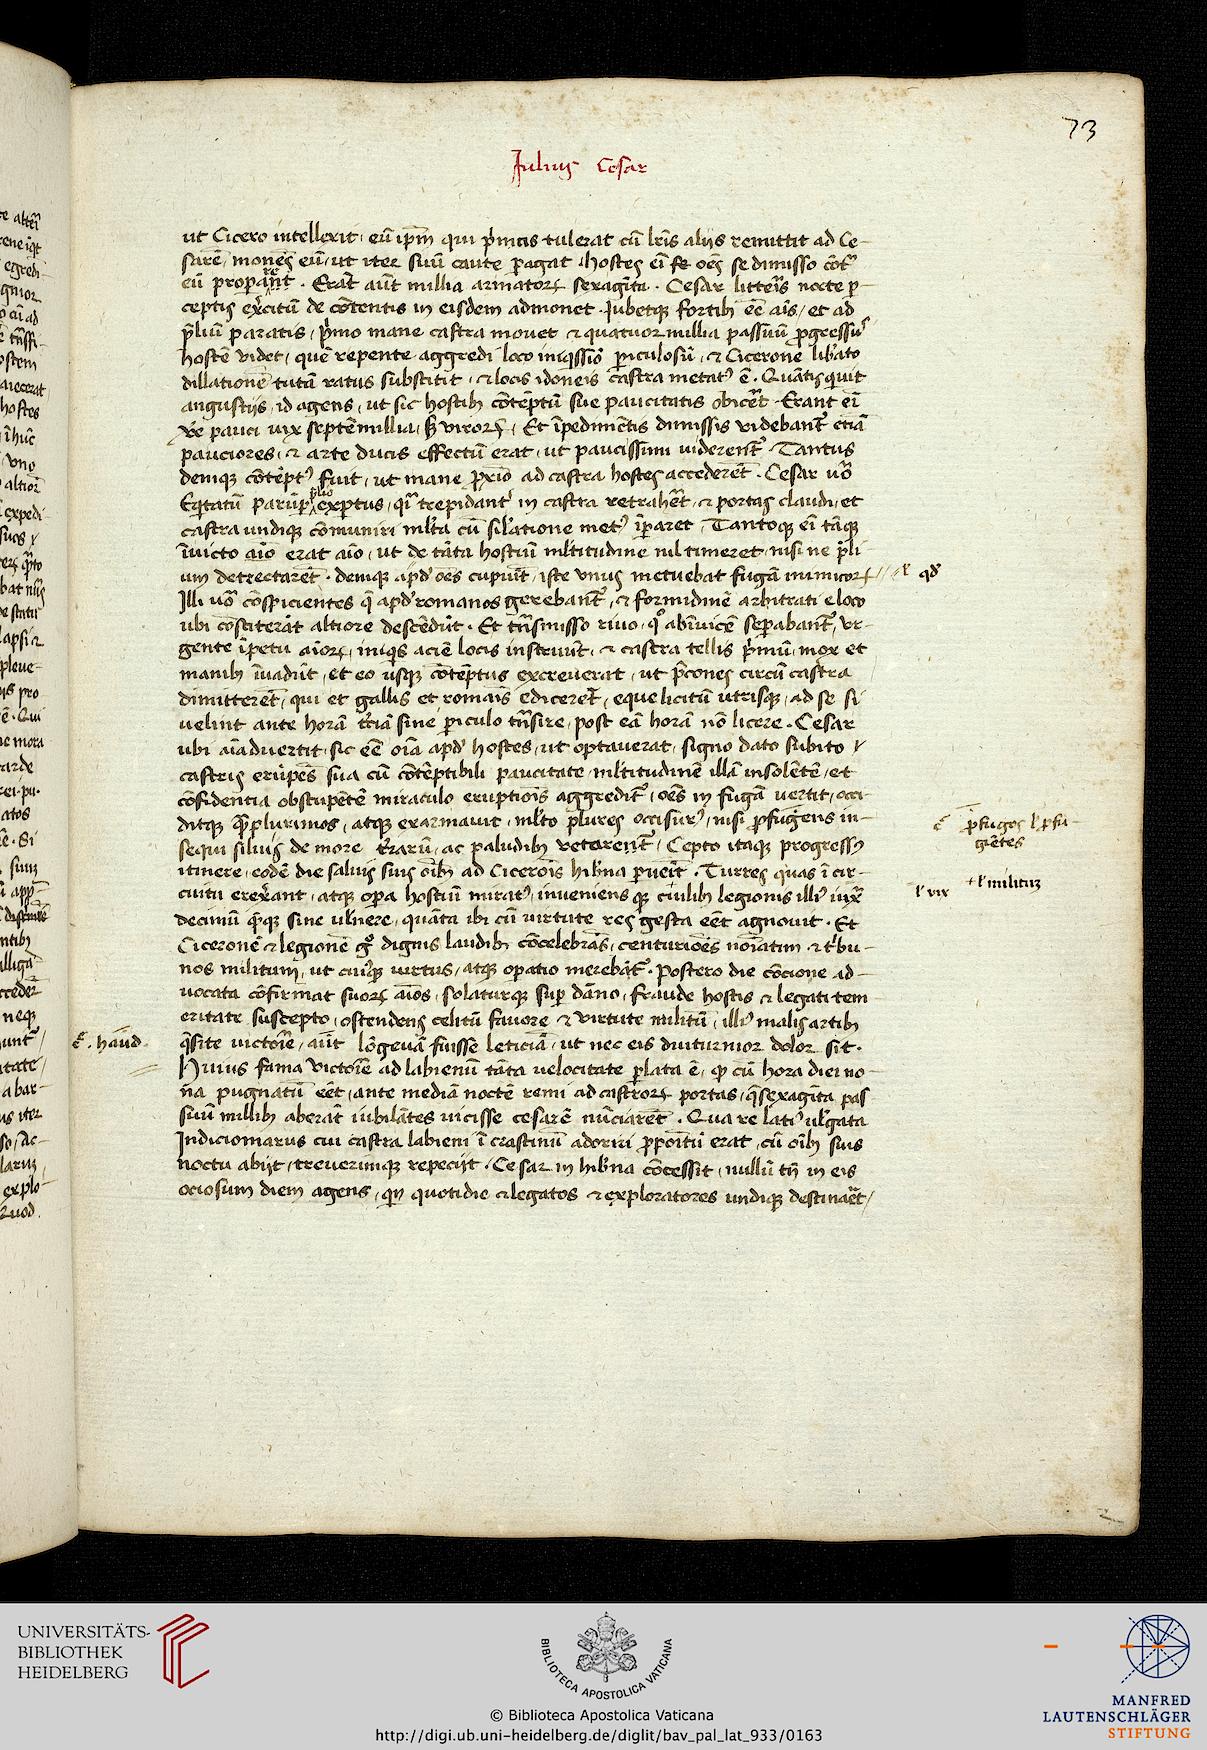 73
Julius Cesar
ut Cicero intellexit, eū ipm̄ qui p̄mitis tulerat cū lr̄is alijs remittit ad Ce-
sarē, monēs eū, ut iter suū caute peragat, hostes eī fe oēs se dimisso cōt̄
eū properarēt. Erāt aūt millia armatorꝝ sexagīta. Cesar litteris nocte p-
ceptis exercitū de cōtentis in eisdem admonet. Jubetqꝫ fortibꝫ eē aīs, et ad
p̄lium paratis, p̄mo mane castra mouet et quatuor millia passuū progressus
hostē videt, quē repente aggredi loco iniqissīo periculosū, et Ciceronē liberato
dillationē tutā ratus substitit, et locis idoneis castra metatꝰ ē. Quātisqꝫ uit
angustijs, id agens, ut sic hostibꝫ cōtēptū sue paucitatis obiceret. Erant eī
vere pauci vix septē millia, sꝫ virorꝝ, Et īpedimētis dimissis videbant᷑ etiā
pauciores, et arte ducis effectum erat, ut paucissimi viderent᷑. Tantus
demqꝫ cōtēptꝰ fuit, ut mane proxīo ad castra hostes accederēt. Cesar uō
Eqitatū parūper plio expertus, qͣ trepidantꝰ in castra retraheret, et portas claudi, et
castra undiqꝫ cōmuniri mlta cū sīlatione metꝰ īparet, Tantoqꝫ eī tāqꝫ
īuicto aīo erat aīo, ut de tāta hostiū mltitudine nil timeret, nisi ne p̄li-
um detrectarēt. demqꝫ apd̓ oēs cupiūt, iste vnus metuebat fugā inimicorꝝ // l̓ qd̓
Illi uō cōspicientes q̄ apd̓ romanos gerebant᷑, et formidinē arbitrati e loco
ubi cōstiterāt altiore descēdūt. Et trāsmisso riuo, qͦ abīuicē seperabant᷑, vr-
gente īpetu aīorꝝ, iniqis aciē locis instruūt, et castra tellis p̄mū, mox et
manibꝫ īuadūt, et eo usqꝫ cōtēptus excreuerat, ut p̄cones circū castra
dimitterēt, qui et gallis et romāis edicerēt, eque licitū utrisqꝫ, ad se si
velint ante horā tr̄ciā sine periculo trāsire, post eā horā nō licere. Cesar
ubi aīaduertit, sic eē oīa apd̓ hostes, ut optauerat, signo dato subito ex
castris erūpēs sua cū cōtēptibili paucitate, mltitudinē illā insolētē, et
cōfidentia obstupētē miraculo eruptiōis aggredit᷑, oēs in fugā vertit, occi-
ditqꝫ q̄plurimos, atqꝫ exarmauit, mlto plures occisurꝰ, nisi profugiens in-
sequi siluis de more tr̄rarū, ac paludibꝫ vetarent᷑, Cepto itaqꝫ progressꝰ
itinere, eodē die saluis suis oībꝫ ad Cicerōis hibꝰna puēit. Turres quas ī cir-
cuitu erexerant, atqꝫ opa hostiū miratꝰ, inueniens qꝫ ciuilibꝫ legionis illiꝰ vix
decimū q̄nqꝫ sine vlnere, quāta ibi cū virtute res gesta eēt agnouit. Et
Ciceronē et legionē gͦ dignis laudibꝫ cōcelebrās, centuriōes noīatim et tribu-
nos militum, ut cuiꝰqꝫ virtus, atqꝫ opatio merebāt᷑. Postero die cōcione ad-
uocata cōfirmat suorꝝ aīos, solaturqꝫ sup dāno, fraude hostis et legati tem-
eritate suscepto, ostendens celitū fauore et virtute militū, illiꝰ malis artibꝫ
q̄site victorīe, aūt lōgeuā fuisse leticiā, ut nec eis diuturnior dolor sit.
Huius fama victorīe ad labienū tāta velocitate perlata ē, qꝫ cū hora diei no-
na pugnatū eēt, ante mediā noctē remi ad castrorꝝ portas, q̄ sexagīta pas-
suū millibꝫ aberāt iubilātes vicisse cesarē nūciarēt. Qua re latiꝰ vlgata
Indiciomarus cui castra labieni ī crastinū adoriri ppoītū erat, cū oībꝫ suis
noctu abijt, treuerimqꝫ repecijt. Cesar in hibꝰna cōcessit, nullū tn̄ in eis
ociosum diem agens, qn̄ quotidie et legatos et exploratores undiqꝫ destinaret,
profugos l̓ profu-
giētes
l̓ vix
+ l̓ militum
haūd
UNIVERSITÄTS-
BIBLIOTHEK
HEIDELBERG
BIBLIOTECA APOSTOLICA VATICANA
© Biblioteca Apostolica Vaticana
http://digi.ub.uni-heidelberg.de/diglit/bav_pal_lat_933/0163
MANFRED
LAUTENSCHLÄGER
STIFTUNG